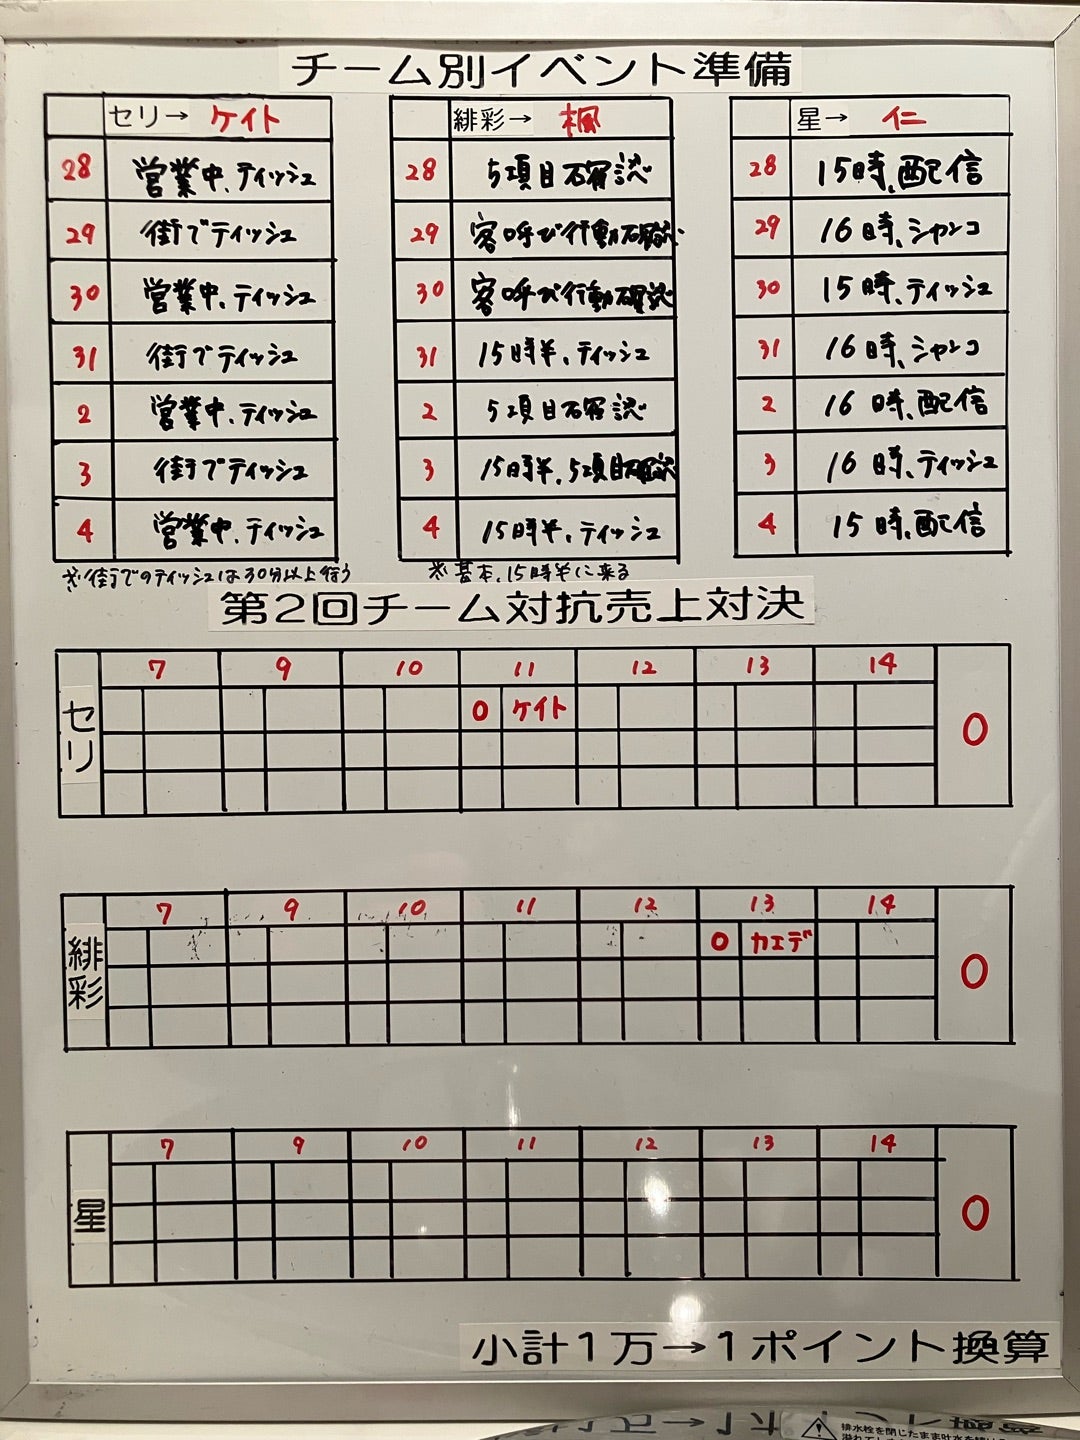 チーム別イベント準備
セリ→ ケイト
28 営業中、ティッシュ
29 街でティッシュ
30 営業中、ティッシュ
31 街でティッシュ
2 営業中、ティッシュ
3 街でティッシュ
4 営業中、ティッシュ
※街でのティッシュは30分以上行う
緋彩→ 楓
28 5項目確認
29 客呼び行動確認
30 客呼び行動確認
31 15時半、ティッシュ
2 5項目確認
3 15時半、5項目確認
4 15時半、ティッシュ
※基本、15時半に来る
星→ 仁
28 15時、配信
29 16時、シャンコ
30 15時、ティッシュ
31 16時、シャンコ
2 16時、配信
3 16時、ティッシュ
4 15時、配信
第2回チーム対抗売上対決
セリ
7 9 10 11 12 13 14
0 ケイト
0
緋彩
7 9 10 11 12 13 14
0 カエデ
0
星
7 9 10 11 12 13 14
0
小計1万→1ポイント換算
排水栓を閉じたまま吐水を続ける